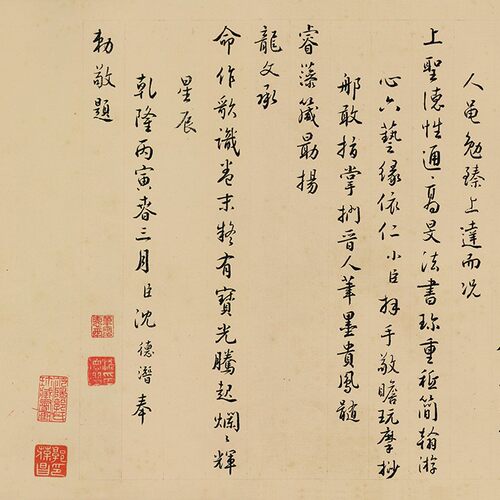 人黽勉臻上達而況
上聖德性通高旻法書珍重祗簡翰游
心六藝緣依仁小臣拜手敬瞻玩摩挱
那敢指掌捫晉人筆墨貴鳳髓
睿藻箴勗揚
龍文承
命作歌識卷末疑有寶光騰起爛〻輝
星辰
乾隆丙寅春三月臣沈德潛奉
勅敬題